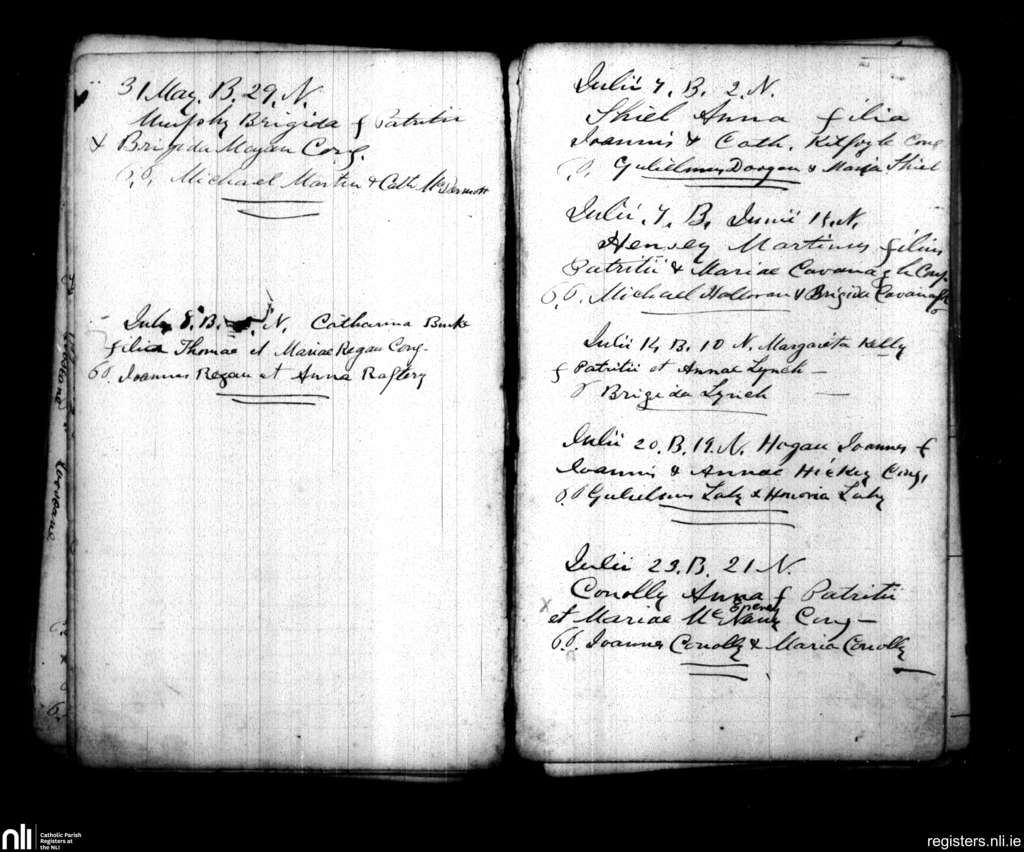 31 May. B. 29. N.
Murphy Brigida f Patritii
& Brigidae Megan Conj.
Michael Martin & Cath McDermott
July 8. B. N. Catharina Burke
filia Thomae et Mariae Regan Conj-
Joannes Regan et Anna Raftery
Julii 7. B. 2. N.
Shiel Anna filia
Joannis & Cath. Kilfoyle Conj
Gulielmus Doogan & Maria Shiel
Julii. 7. B. Junii N.
Hensey Martinus filius
Patritii & Mariae Cavanagh Conj.
Michael Halloran & Brigida Cavanagh
Julii 14 B. 10 N. Margarita Kelly
f Patritii et Annae Lynch -
Brigida Lynch
Julii 20. B. 19. N. Hogan Joannes f
Joannis & Annae Hickey Conj.
Gulielmus Laly & Honoria Laly
Julii 23. B. 21 N.
Conolly Anna f Patritii
et Mariae Conj-
Joannes Conolly & Maria Conolly
nli Catholic Parish
Registers at
the NLI
registers.nli.ie